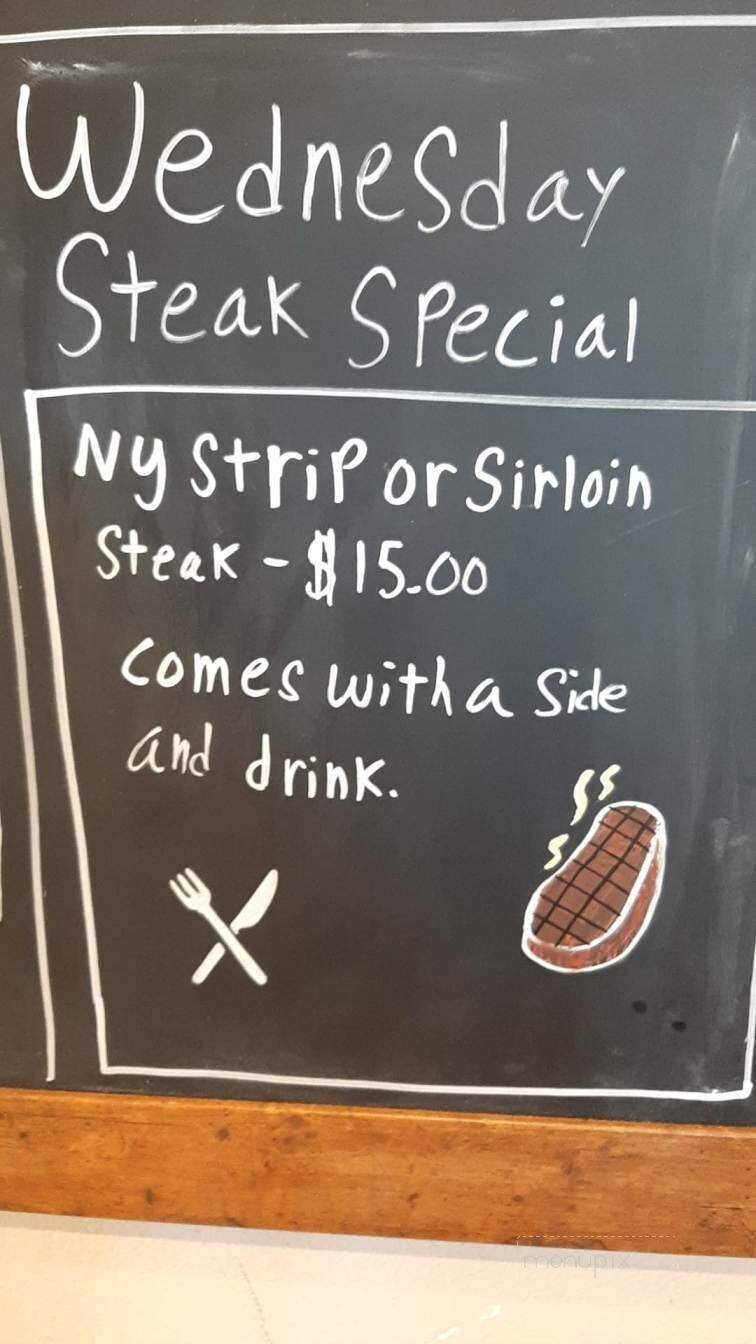 Wednesday
Steak Special
NY Strip or Sirloin
Steak - $15.00
comes with a side
and drink.
menupix